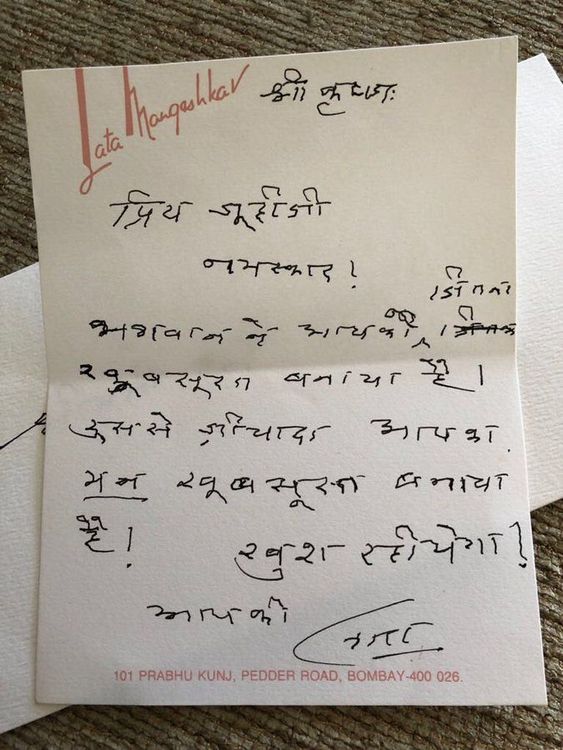 Lata Mangeshkar
श्री कृष्णः
प्रिय जूहीजी
नमस्कार!
भगवान ने आपको जितना
खूबसूरत बनाया है।
उससे ज़ियादा आपका
मन खूबसूरत बनाया
है! खुश रहीयेगा!
आपकी
लता
101 PRABHU KUNJ, PEDDER ROAD, BOMBAY-400 026.